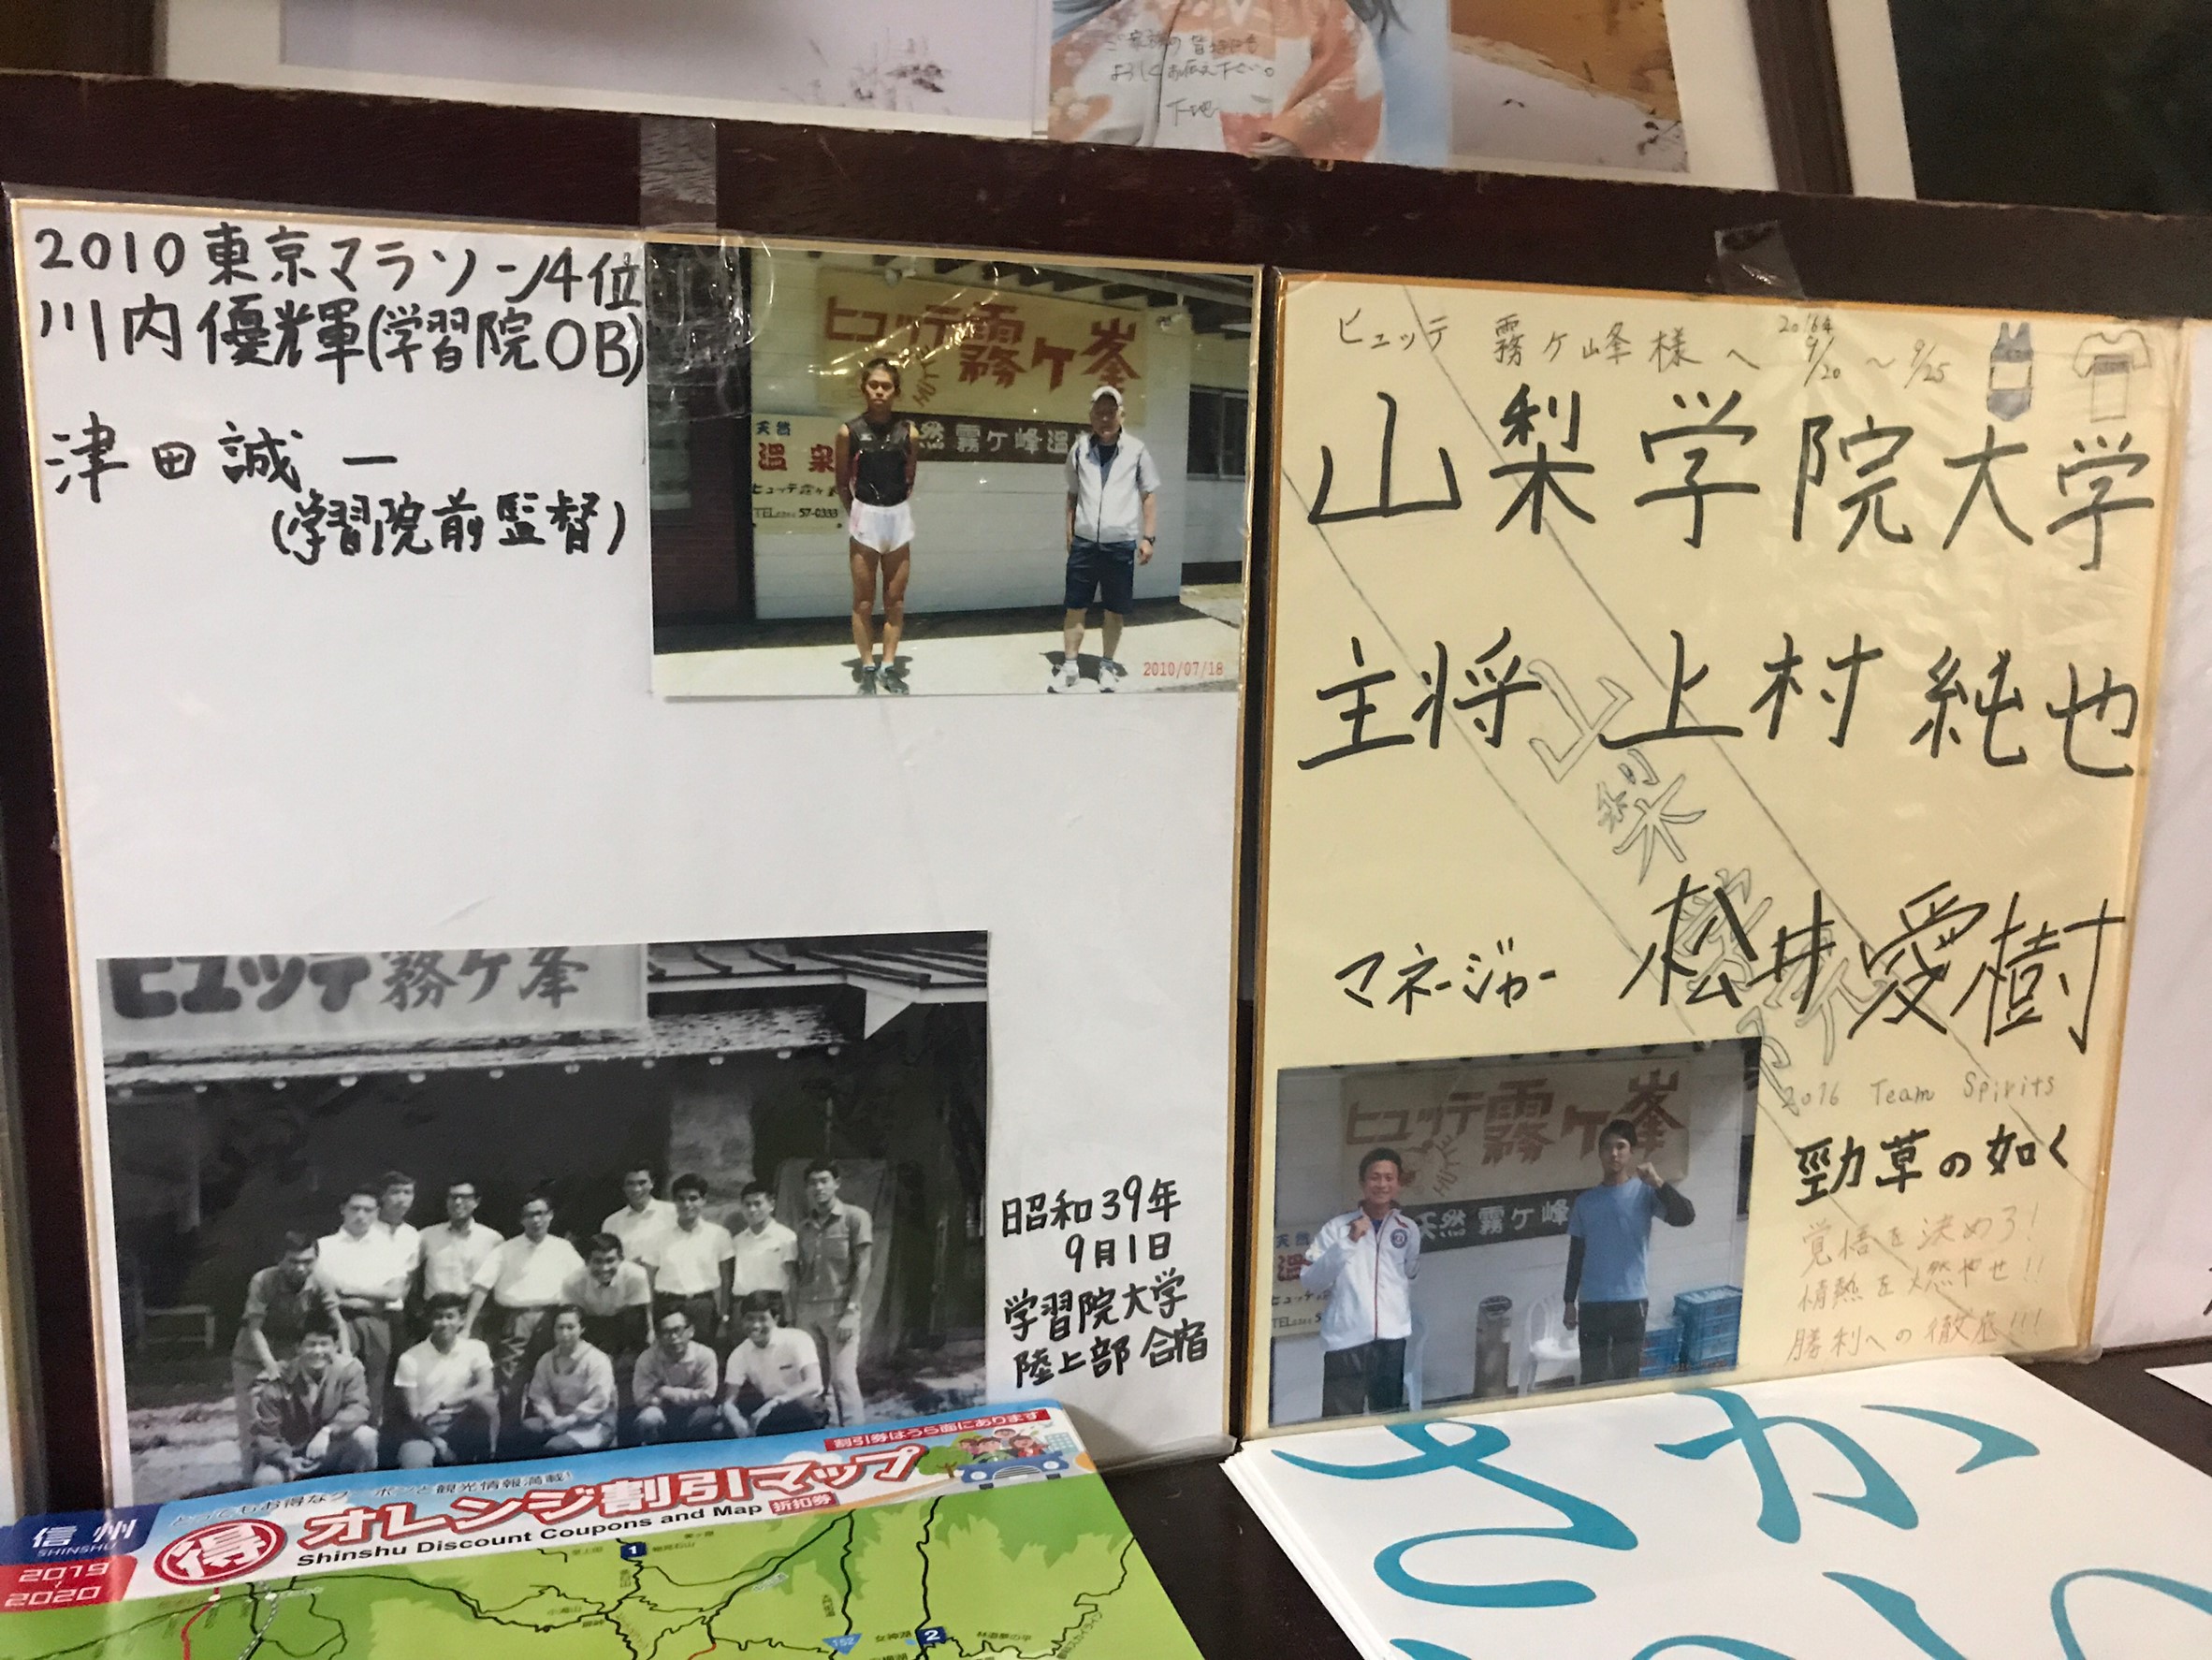 ご家族の皆様にも
よろしくお伝え下さい。
2010東京マラソン4位
川内優輝(学習院OB)
津田誠一
(学習院前監督)
ヒュッテ霧ケ峯
HUTTE
天然
温泉
天然霧ケ峰温
ヒュッテ霧ケ峯
TEL 57-0333
2010/07/18
ヒュッテ霧ケ峯
昭和39年
9月1日
学習院大学
陸上部合宿
ヒュッテ 霧ケ峰様へ
9/20～9/25
山梨学院大学
主将 上村純也
マネージャー 松井愛樹
山梨学院
ヒュッテ霧ケ峯
HUTTE
天然霧ケ峰
天然
TEL
2016 Team Spirits
勁草の如く
覚悟を決めろ!
情熱を燃やせ!!
勝利への徹底!!!
割引券はうら面にあります
とってもお得なクーポンと観光情報満載!
信州
SHINSHU
2019
2020
得
オレンジ割引マップ
Shinshu Discount Coupons and Map 折扣券
1
152
2
さか